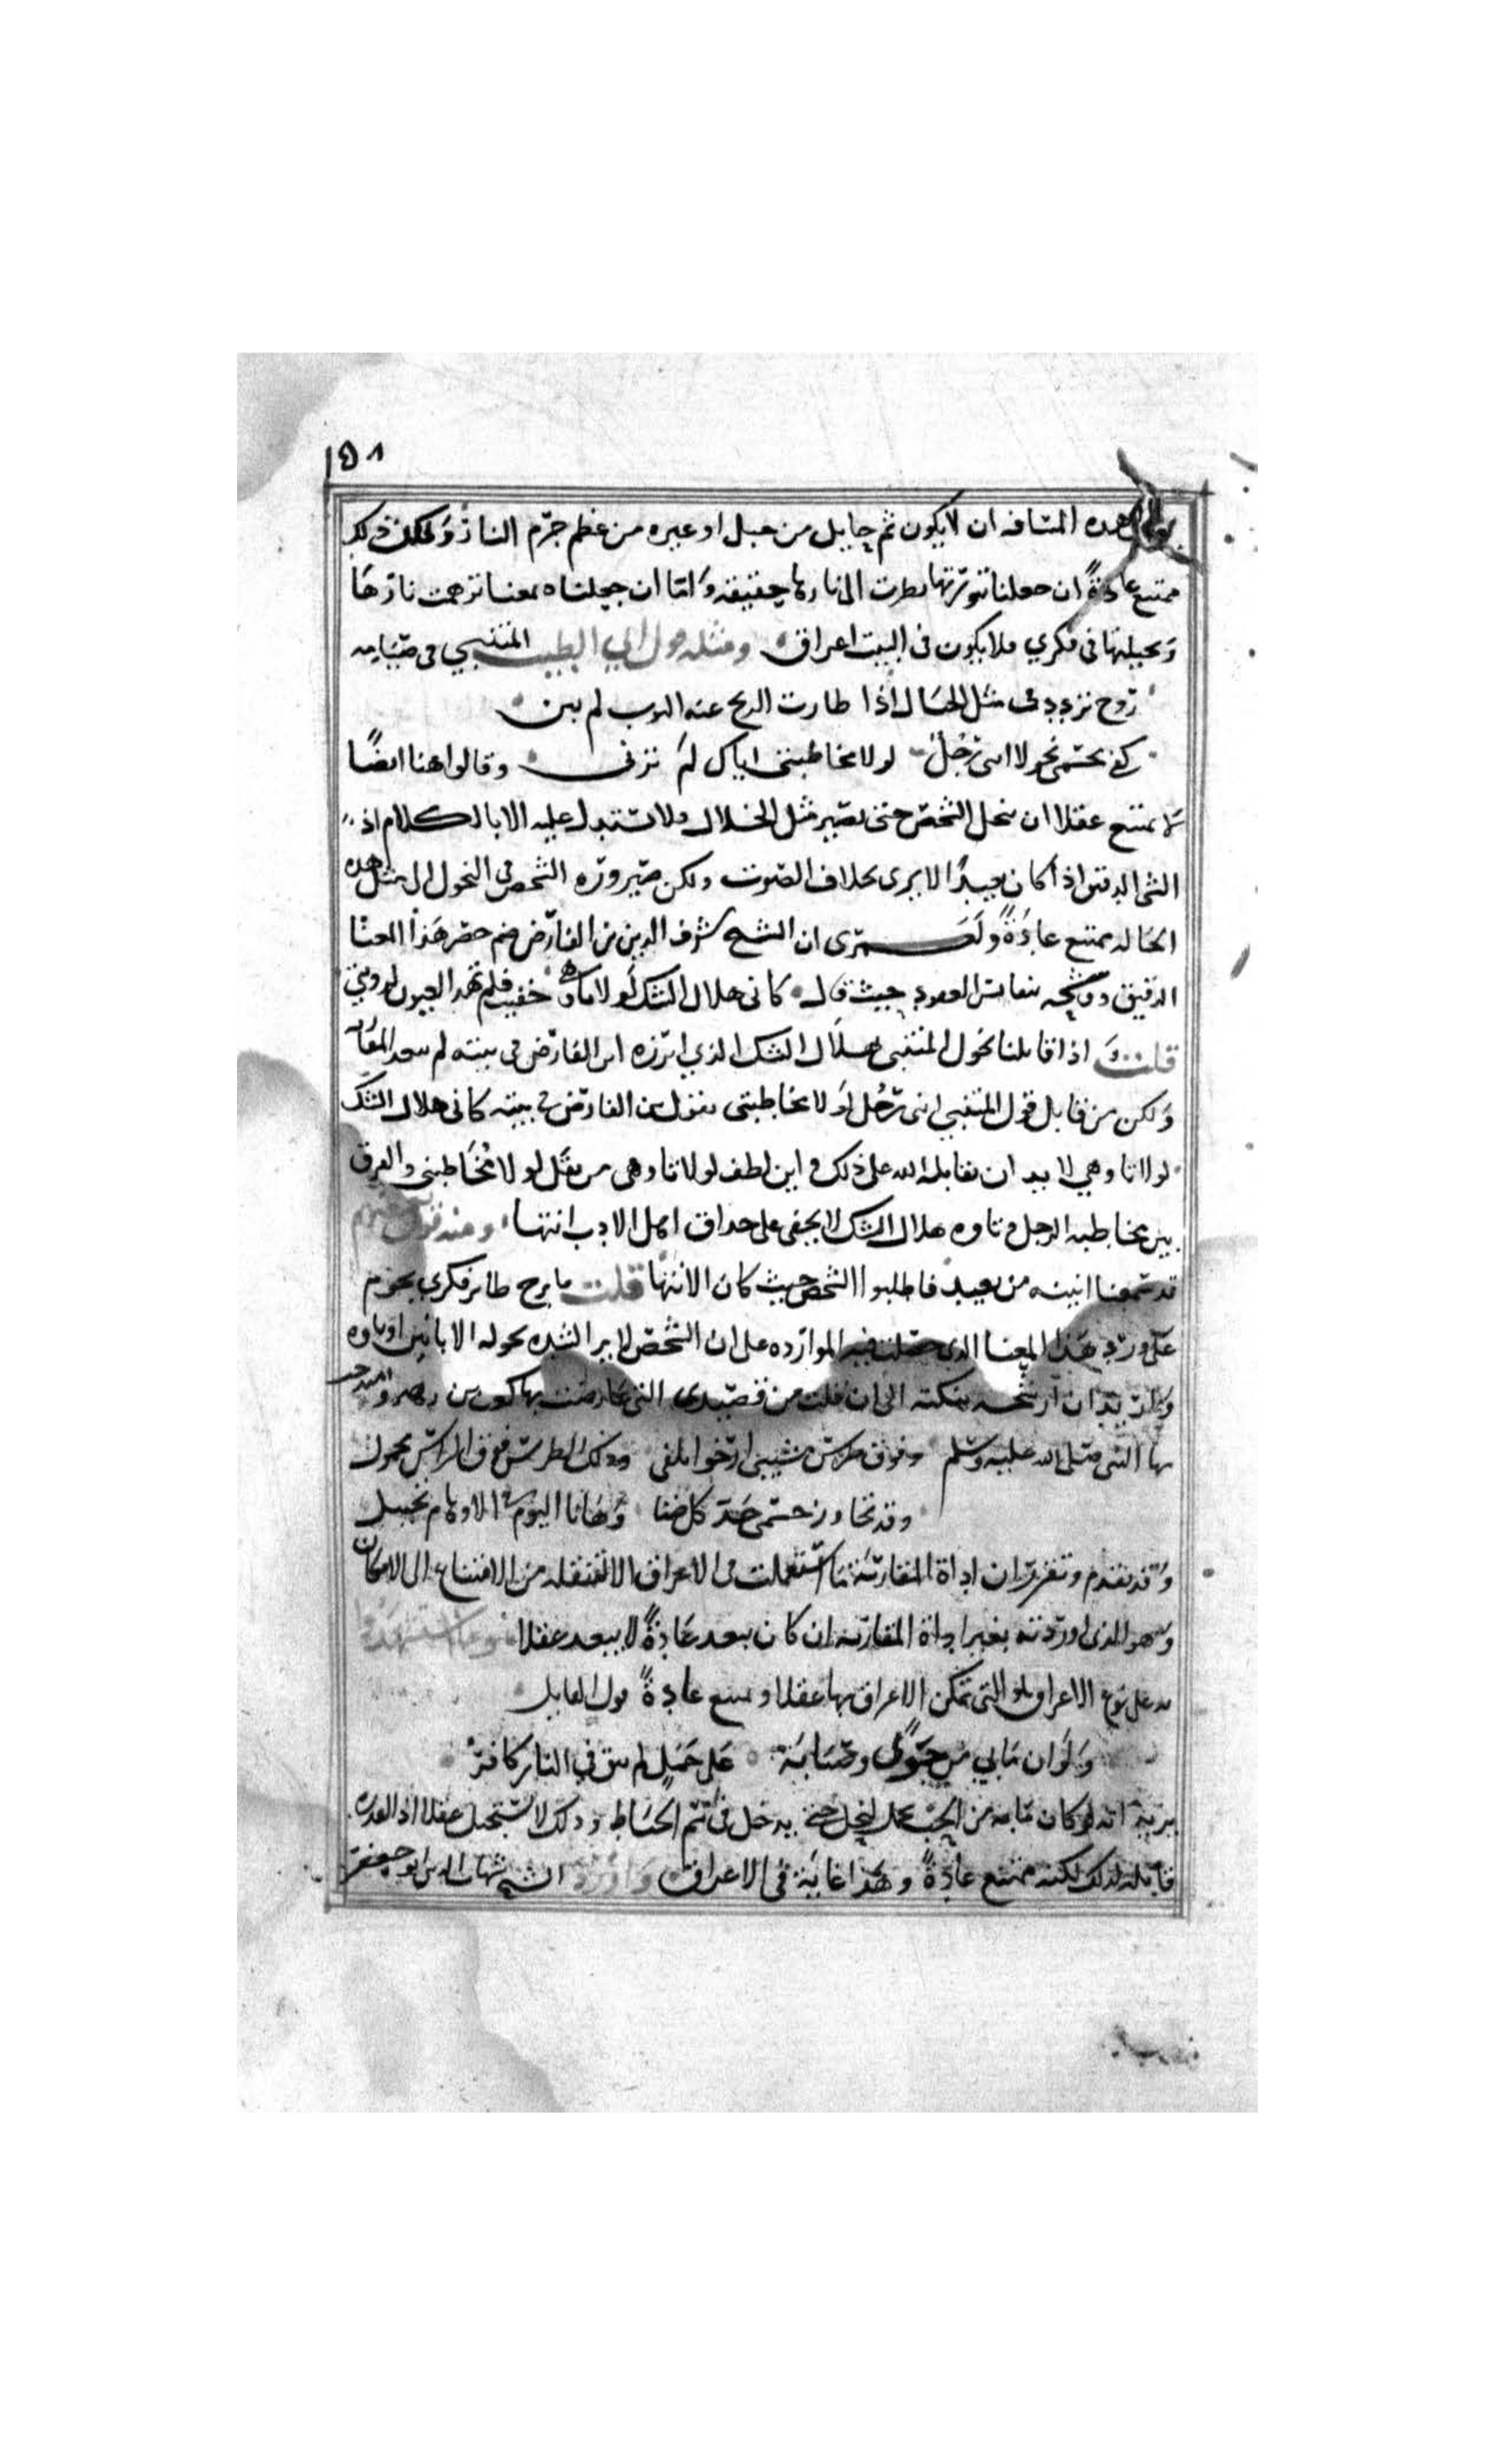 ١٥٨
هذه المسافه ان لا يكون ثم حايل من جبل او غيره من عظم جرم النار ولكن ذلك
ممتنع عادةً ان جعلنا تنورتها نظرت الى نارها حقيقه وَامّا ان جعلناه بمعنا توهمت نارَهَا
وَتخيلتها فى فكري فلا يكون فى البيت اغراق ومثله قول ابي الطيب المتنبي فى صبابته
روح تردد فى مثل الخلال اذا طارت الريح عنه الثوب لم يبن
كفى بجسمى نحولا اننى رجل لولا مخاطبتى اياك لم ترنى وقالوا هنا ايضًا
لا يمتنع عقلا ان ينحل الشخص حتى يصير مثل الخلال ولا يستدل عليه الا بالكلام اذ
الشى الدقيق اذا كان بعيدًا لا يرى بخلاف الصوت ولكن صيرورة الشخص فى النحول الى مثل هذه
الحاله ممتنع عادَةً ولَعَمرى ان الشيخ شرف الدين بن الفارض هذا المعنا
الدقيق ووشحه العقود حيث قال كانى هلال الشك لولا تاوهى خفيت فلم تهد العيون لرويتي
قلت وَ اذا قابلنا نحول المتنبى بهلال الشك الذي ابرزه ابن الفارض فى بيته لم
وَلكن من قابل قول المتنبي اننى رجُل لولا مخاطبتى بقول ابن الفارض فى بيته كانى هلال الشك
لولا تاوهي لا بد ان يقابله الله على ذلك و اين لطف لولا تاوهى من ثقل لولا مُخَاطبتى والفرق
بين مخاطبه الرجل وتاوه هلال الشك لا يخفى على حذاق اهل الادب انتها ومنه قول
قد سمعنا انينه من بعيد فاطلبوا الشخص حيث كان الانين انتها قلت ما برح طاير فكري يحوم
على ورد هذا المعنا الذى حصلت فيه الموارده على ان الشخص لا يرا لشده نحوله الا بانين او تاوه
وَ ان ارشحه بنكته الى ان قلت من قصيدى التى عارضت بها كعب بن زهير و
بها النبى صلى الله عليه وسلم
وقد تجاوز جسمى حدّ كل ضنا وَهَا انا اليوم فى الاوهام تخييل
وَقد تقدم وتقرر ان اداة المقاربَة مَا استعملت فى الاغراق الا لتنقله من الامتناع الى الامكان
وَهو الذى اوردته بغير اداة المقاربه ان كان يبعد عَادةً لا يبعد عقلا
به على نوع الاغراق بلو التى يمكن الاغراق بها عقلا ويمتنع عادةً قول القايل
وَلَو ان مَابي من جَوًى وصَبَابَة على جَمَلٍ لم يبق في النار كَافرُ
يريد انه لو كان مابه من الحب بجمل لنحل حتى يدخل فى سَمّ الخيَاط وذلك لا يستحيل عقلا اذ القدرة
قابله لذلك لكنه ممتنع عادةً وهَذا غايَة فى الاغراق وَاورد الشيخ شهاب الدين ابو جعفر